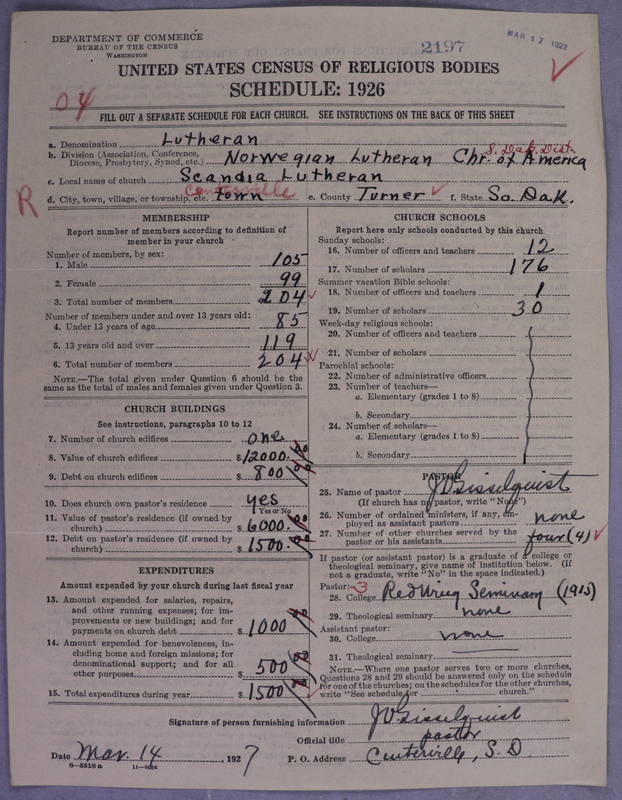 DEPARTMENT OF COMMERCE
BUREAU OF THE CENSUS
WASHINGTON
2197
MAR 17 1927
UNITED STATES CENSUS OF RELIGIOUS BODIES
SCHEDULE: 1926
04
FILL OUT A SEPARATE SCHEDULE FOR EACH CHURCH. SEE INSTRUCTIONS ON THE BACK OF THIS SHEET
a. Denomination Lutheran
S. Dak. Dist.
b. Division (Association, Conference, Diocese, Presbytery, Synod, etc.) Norwegian Lutheran Chr. of America
c. Local name of church Scandia Lutheran
R
Centerville
d. City, town, village, or township, etc. town e. County Turner f. State So. Dak.
MEMBERSHIP
Report number of members according to definition of
member in your church
Number of members, by sex:
1. Male 105
2. Female 99
3. Total number of members 204
Number of members under and over 13 years old:
4. Under 13 years of age 85
5. 13 years old and over 119
6. Total number of members 204
NOTE.—The total given under Question 6 should be
same as the total of males and females given under Question 3.
CHURCH BUILDINGS
See instructions, paragraphs 10 to 12
7. Number of church edifices one
8. Value of church edifices $12000.00
9. Debt on church edifices $800.00
10. Does church own pastor's residence yes
Yes or No
11. Value of pastor's residence (if owned by
church) $6000.00
12. Debt on pastor's residence (if owned by
church) $1500.00
EXPENDITURES
Amount expended by your church during last fiscal year
13. Amount expended for salaries, repairs,
and other running expenses; for im-
provements or new buildings; and for
payments on church debt $1000.00
14. Amount expended for benevolences, in-
cluding home and foreign missions; for
denominational support; and for all
other purposes $500.00
15. Total expenditures during year $1500.00
CHURCH SCHOOLS
Report here only schools conducted by this church
Sunday schools:
16. Number of officers and teachers 12
17. Number of scholars 176
Summer vacation Bible schools:
18. Number of officers and teachers 1
19. Number of scholars 30
Week-day religious schools:
20. Number of officers and teachers
21. Number of scholars
Parochial schools:
22. Number of administrative officers
23. Number of teachers—
a. Elementary (grades 1 to 8)
b. Secondary
24. Number of scholars—
a. Elementary (grades 1 to 8)
b. Secondary
PASTOR
25. Name of pastor J V Gisselquist
(If church has no pastor, write "None")
26. Number of ordained ministers, if any, em-
ployed as assistant pastors none
27. Number of other churches served by the
pastor or his assistants four (4)
If pastor (or assistant pastor) is a graduate of a college or
theological seminary, give name of institution below. (If
not a graduate, write "No" in the space indicated.)
Pastor: 3
28. College Red Wing Seminary (1915)
29. Theological seminary none
Assistant pastor:
30. College none
31. Theological seminary
NOTE.—Where one pastor serves two or more churches,
Questions 28 and 29 should be answered only on the schedule
for one of the churches; on the schedules for the other churches,
write "See schedule for church."
Signature of person furnishing information J V Gisselquist
Official title pastor
Date Mar. 14, 1927 P. O. Address Centerville, S. D.
8—5518 a